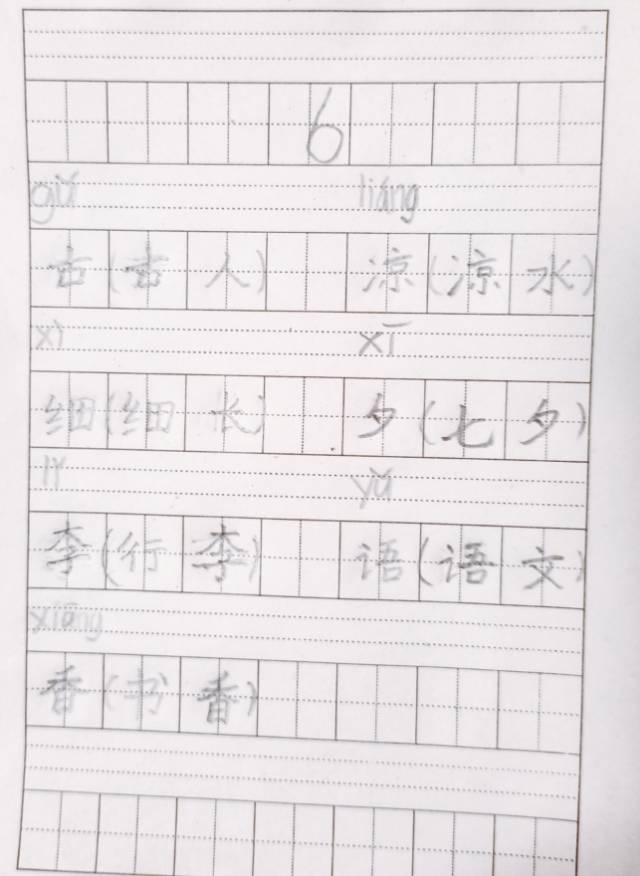 6
gǔ liáng
古(古人) 凉(凉水)
xì xī
细(细长) 夕(七夕)
lǐ yǔ
李(行李) 语(语文)
xiāng
香(书香)